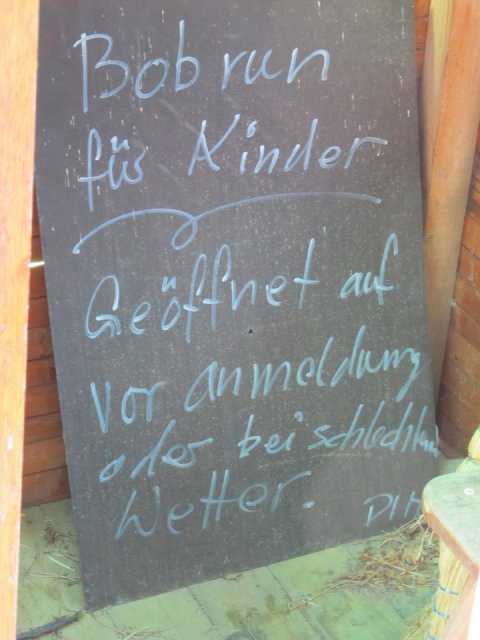 Bobrun
für Kinder
Geöffnet auf
vor anmeldung
oder bei schlechtem
Wetter.